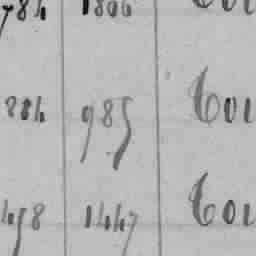 784 1806 Cou
884 985 Cou
458 1447 Cou